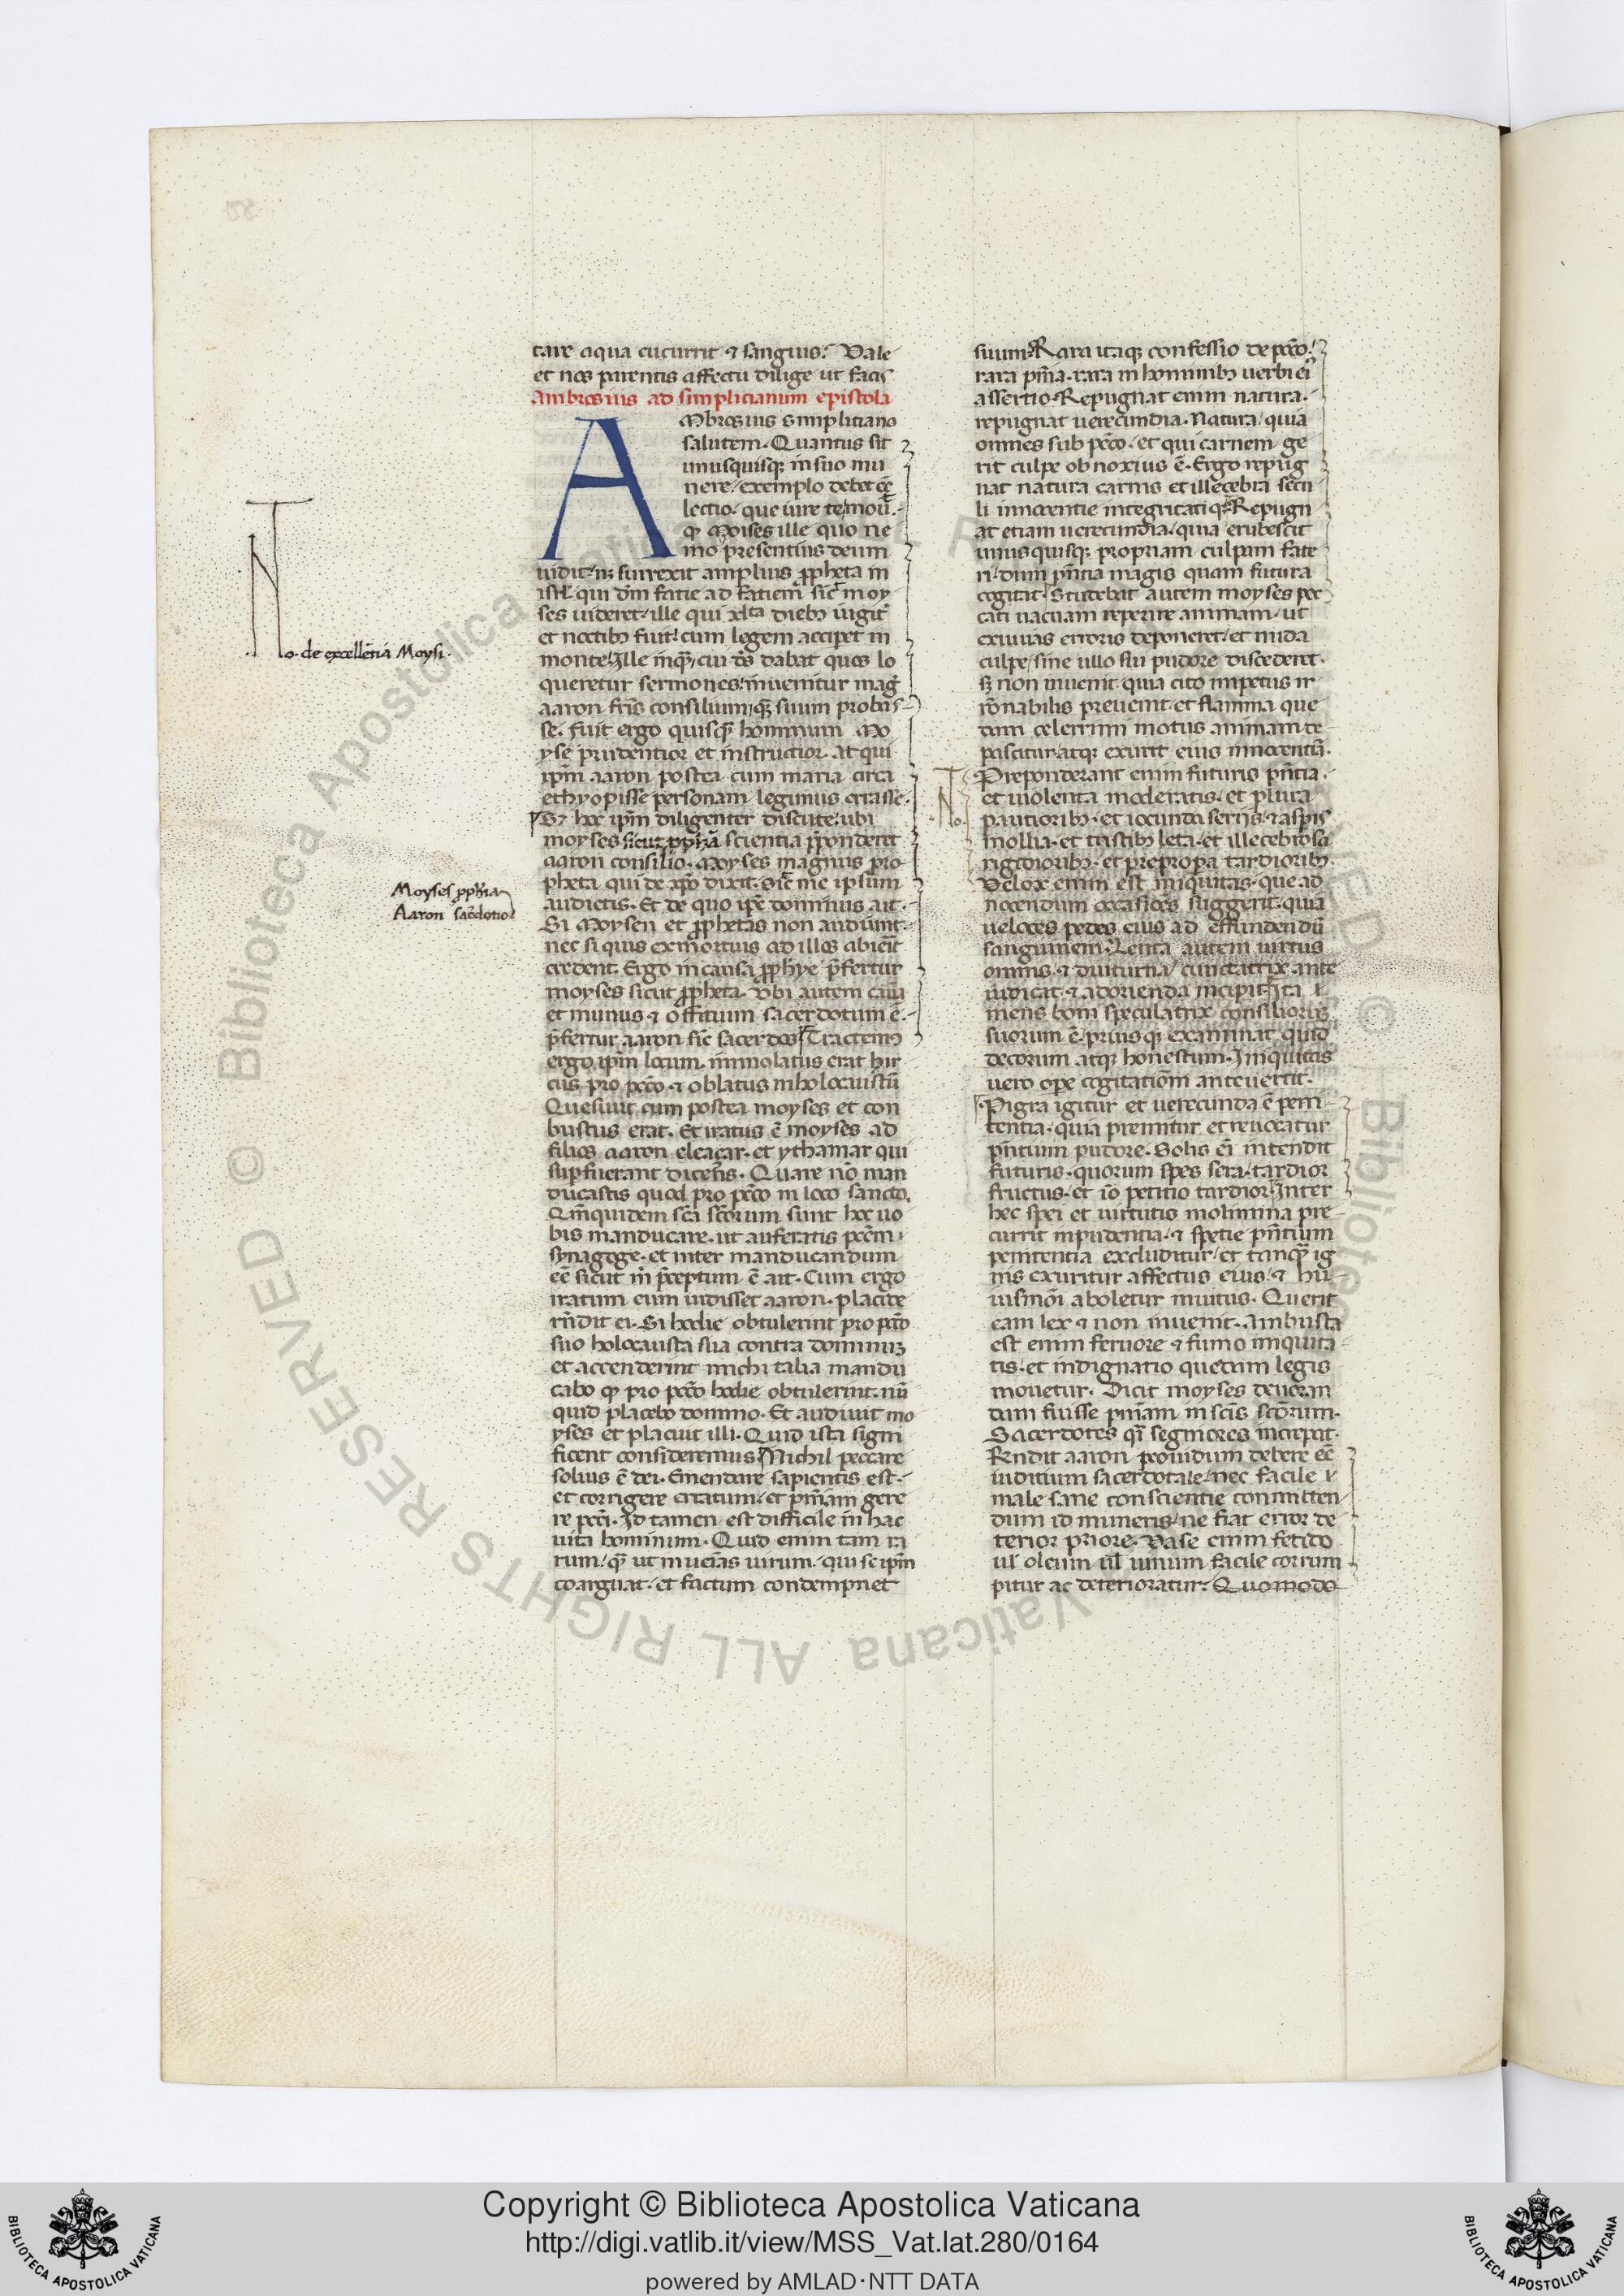 tare aqua cucurrit ⁊ sanguis. Vale
et nos parentis affectu dilige ut facis
Ambrosius ad simplicianum epistola
AMbrosius simpliciano
salutem. Quantus sit
unusquisqꝫ in suo mu
nere, exemplo debet eē
lectio. que iure te mou.
ꝙ Moises ille quo ne
mo presentius deum
uidit, nꝫ surrexit amplius ꝓpheta in
isrl. qui dm̄ facie ad faciem sic moy
ses uideret. ille qui xlta diebꝫ iugit
et noctibꝫ fuit, cum legem acciꝑet in
monte. Ille inꝙ, cui ds̄ dabat quos lo
queretur sermones, inuenitur mag
aaron fr̄is consilium, qꝫ suum probas
se. fuit ergo quisꝙ hominum Mo
yse prudentior et instructior. at qui
ip̄m aaron postea cum maria circa
ethyopisse personam legimus errasse.
Sꝫ hoc ip̄m diligenter discute, ubi
moyses sicut ꝓph̄a scientia p̄ponderet
aaron consilio. Moyses magnus pro
pheta qui de xp̄o dixit. Sic me ipsum
audietis. Et de quo ip̄e dominus ait.
Si Moysen et ꝓphetas non audiunt.
nec si quis ex mortuis ad illos abierit
credent. Ergo in causa ꝓph̄ye p̄fertur
moyses sicut ꝓpheta. Vbi autem cauā
et munus ⁊ offitium sacerdotum ē.
p̄fertur aaron sic̄ sacerdos. Tractemꝰ
ergo ip̄m locum. immolatus erat hir
cus pro pc̄co ⁊ oblatus in holocaustū
Quesiuit eum postea moyses et con
bustus erat. Et iratus ē moyses ad
filios aaron eleazar. et ythamar qui
suꝑfuerant dicens. Quare nō man
ducastis quod pro pc̄co in loco sancto.
Qm̄quidem sc̄a sc̄orum sunt hec uo
bis manducare. ut auferatis pc̄m
synagoge. et inter manducandum
eē sicut m̄ p̄ceptum ē ait. Cum ergo
iratum eum uidisset aaron. placide
rn̄dit ei. Si hodie obtulerint pro pc̄co
suo holocausta sua contra dominū
et accenderint michi talia mandu
cabo ꝙ pro pc̄co hodie obtulerint. nū
quid placebo domino. Et audiuit mo
yses et placuit illi. Quid ista signi
ficent consideremus. Nichil peccare
solius ē dei. Emendare sapientis est.
et corrigere erratum. et pn̄iam gere
re pc̄ci. Id tamen est difficile in hac
uita hominum. Quid enim tam ra
rum, qꝫ ut inueias uirum, qui se ip̄m
coarguat. et factum condempnet
suum. Rara itaqꝫ confessio de pc̄co.
rara pn̄ia. rara in hominibꝫ uerbi ei
assertio. Repugnat enim natura.
repugnat uerecundia. Natura, quia
omnes sub pc̄co, et qui carnem ge
rit culpe obnoxius ē. Ergo repug
nat natura carnis et illecebra secu
li innocentie integritatiqꝫ. Repugn
at etiam uerecundia. quia erubescit
unusquisqꝫ propriam culpam fate
ri, dum pn̄tia magis quam futura
cogitat. Studebat autem moyses pec
cati uacuam reperire animam, ut
exuuias erroris deponeret, et nuda
culpe, sine ullo sui pudore discederet.
sꝫ non inuenit quia cito impetus ir
rōnabilis preuenit, et flamma que
dam celerrimi motus animam de
pascitur. atqꝫ exurit eius innocentiā.
Preponderant enim futuris pn̄tia.
et uiolenta moderatis, et plura
pautioribꝫ. et iocunda serijs. ⁊ aspis
mollia. et tristibꝫ leta. et illecebrosa
rigidioribꝫ. et prepropera tardioribꝫ.
Velox enim est iniquitas. que ad
nocendum occasiōes suggerit. quia
ueloces pedes eius ad effundendū
sanguinem. Lenta autem uirtus
omnis. ⁊ diuturna cunctatrix ante
iudicat. ⁊ adorienda incipit. Ita ⁊
mens boni speculatrix consiliorūqꝫ
suorum ē. priusqꝫ examinat quid
decorum atqꝫ honestum. Iniquitas
uero ope cogitatiom anteuertit.
Pigra igitur et uerecunda ē peni
tentia. quia premitur et reuocatur
pn̄tium pudore. Solis ei intendit
futuris. quorum spes sera, tardior
fructus. et iō petitio tardior. Inter
hec spei et uirtutis molimina pre
currit inpudentia. ⁊ spetie pn̄tium
penitentia excluditur, et tanqꝫ ig
nis exuritur affectus eius. ⁊ hu
iusmōi aboletur intuitus. Querit
eam lex ⁊ non inuenit. Ambusta
est enim feruore ⁊ fumo iniquita
tis. et indignatio quedam legis
mouetur. Dicit moyses deuoran
dam fuisse pn̄iam in sc̄is sc̄orum.
Sacerdotes qi segniores increpat.
Rn̄dit aaron prouidum debere eē
iuditium sacerdotale, nec facile ⁊
male sane conscientie conmitten
dum id muneris, ne fiat error de
terior priore. Vase enim fetido
ul oleum ul uinum facile corrum
pitur ac deterioratur. Quomodo
No. de excellentia Moysi.
Moyses ꝓph̄ia
Aaron sac̄dotio
No.
© Biblioteca Apostolica Vaticana ALL RIGHTS RESERVED
Copyright © Biblioteca Apostolica Vaticana
http://digi.vatlib.it/view/MSS_Vat.lat.280/0164
powered by AMLAD·NTT DATA
BIBLIOTECA APOSTOLICA VATICANA
BIBLIOTECA APOSTOLICA VATICANA